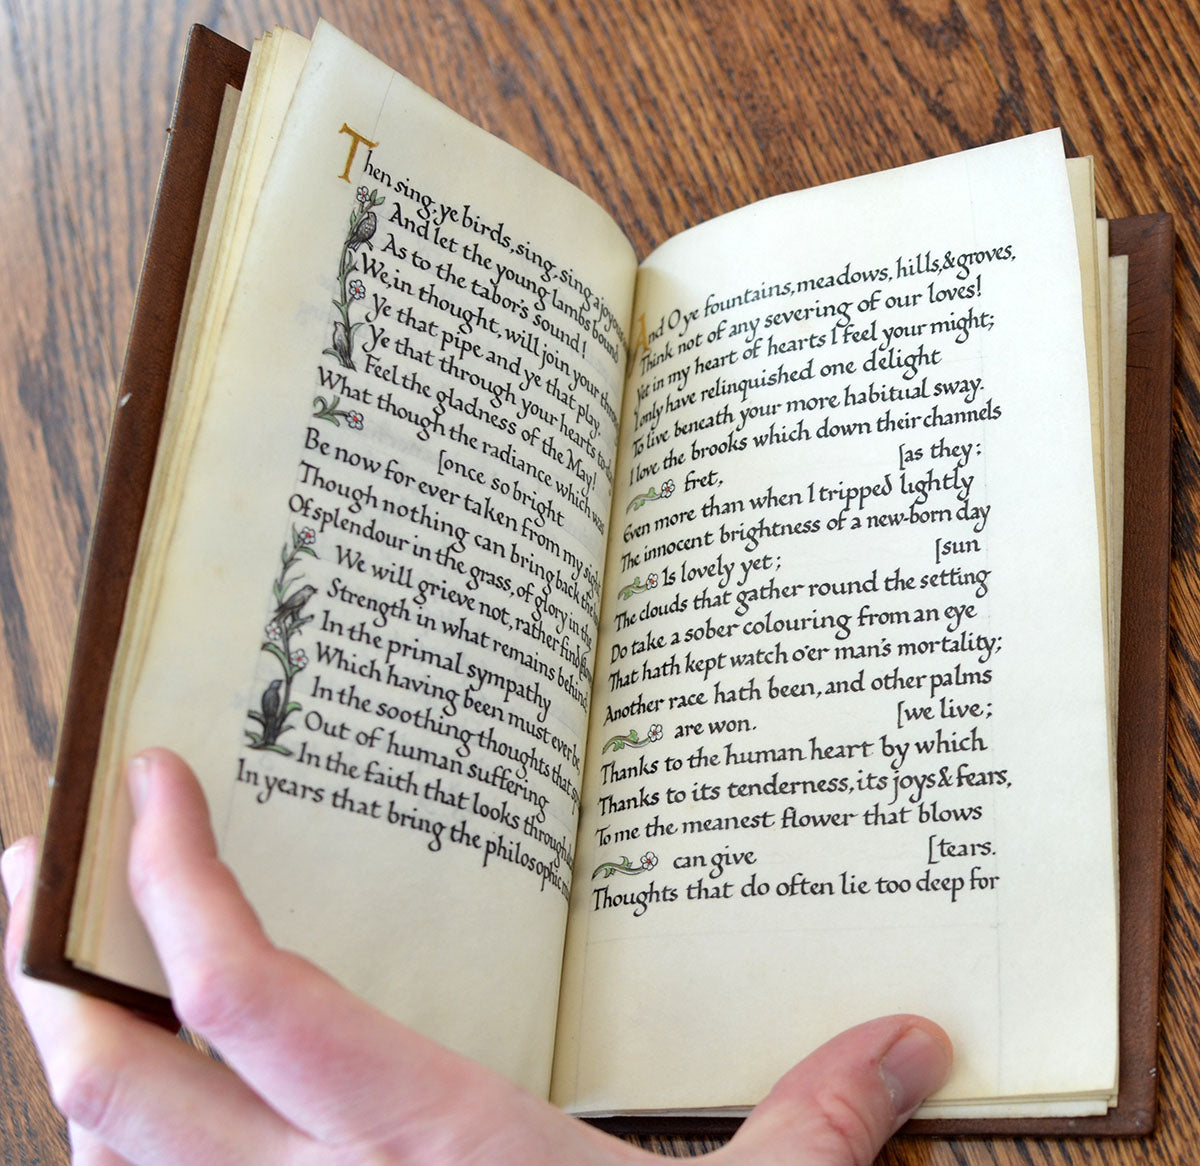 Then sing, ye birds, sing, sing a joyous
And let the young lambs bound
As to the tabor's sound!
We, in thought, will join your throng
Ye that pipe and ye that play,
Ye that through your hearts to-day
Feel the gladness of the May!
What though the radiance which was
[once so bright
Be now for ever taken from my sight
Though nothing can bring back the
Of splendour in the grass, of glory in the
We will grieve not, rather find
Strength in what remains behind,
In the primal sympathy
Which having been must ever be,
In the soothing thoughts that
Out of human suffering
In the faith that looks through
In years that bring the philosophic
And O ye fountains, meadows, hills, & groves,
Think not of any severing of our loves!
Yet in my heart of hearts I feel your might;
I only have relinquished one delight
To live beneath your more habitual sway.
I love the brooks which down their channels
fret, [as they:
Even more than when I tripped lightly
The innocent brightness of a new-born day
Is lovely yet; [sun
The clouds that gather round the setting
Do take a sober colouring from an eye
That hath kept watch o'er man's mortality;
Another race hath been, and other palms
are won. [we live;
Thanks to the human heart by which
Thanks to its tenderness, its joys & fears,
To me the meanest flower that blows
can give [tears.
Thoughts that do often lie too deep for